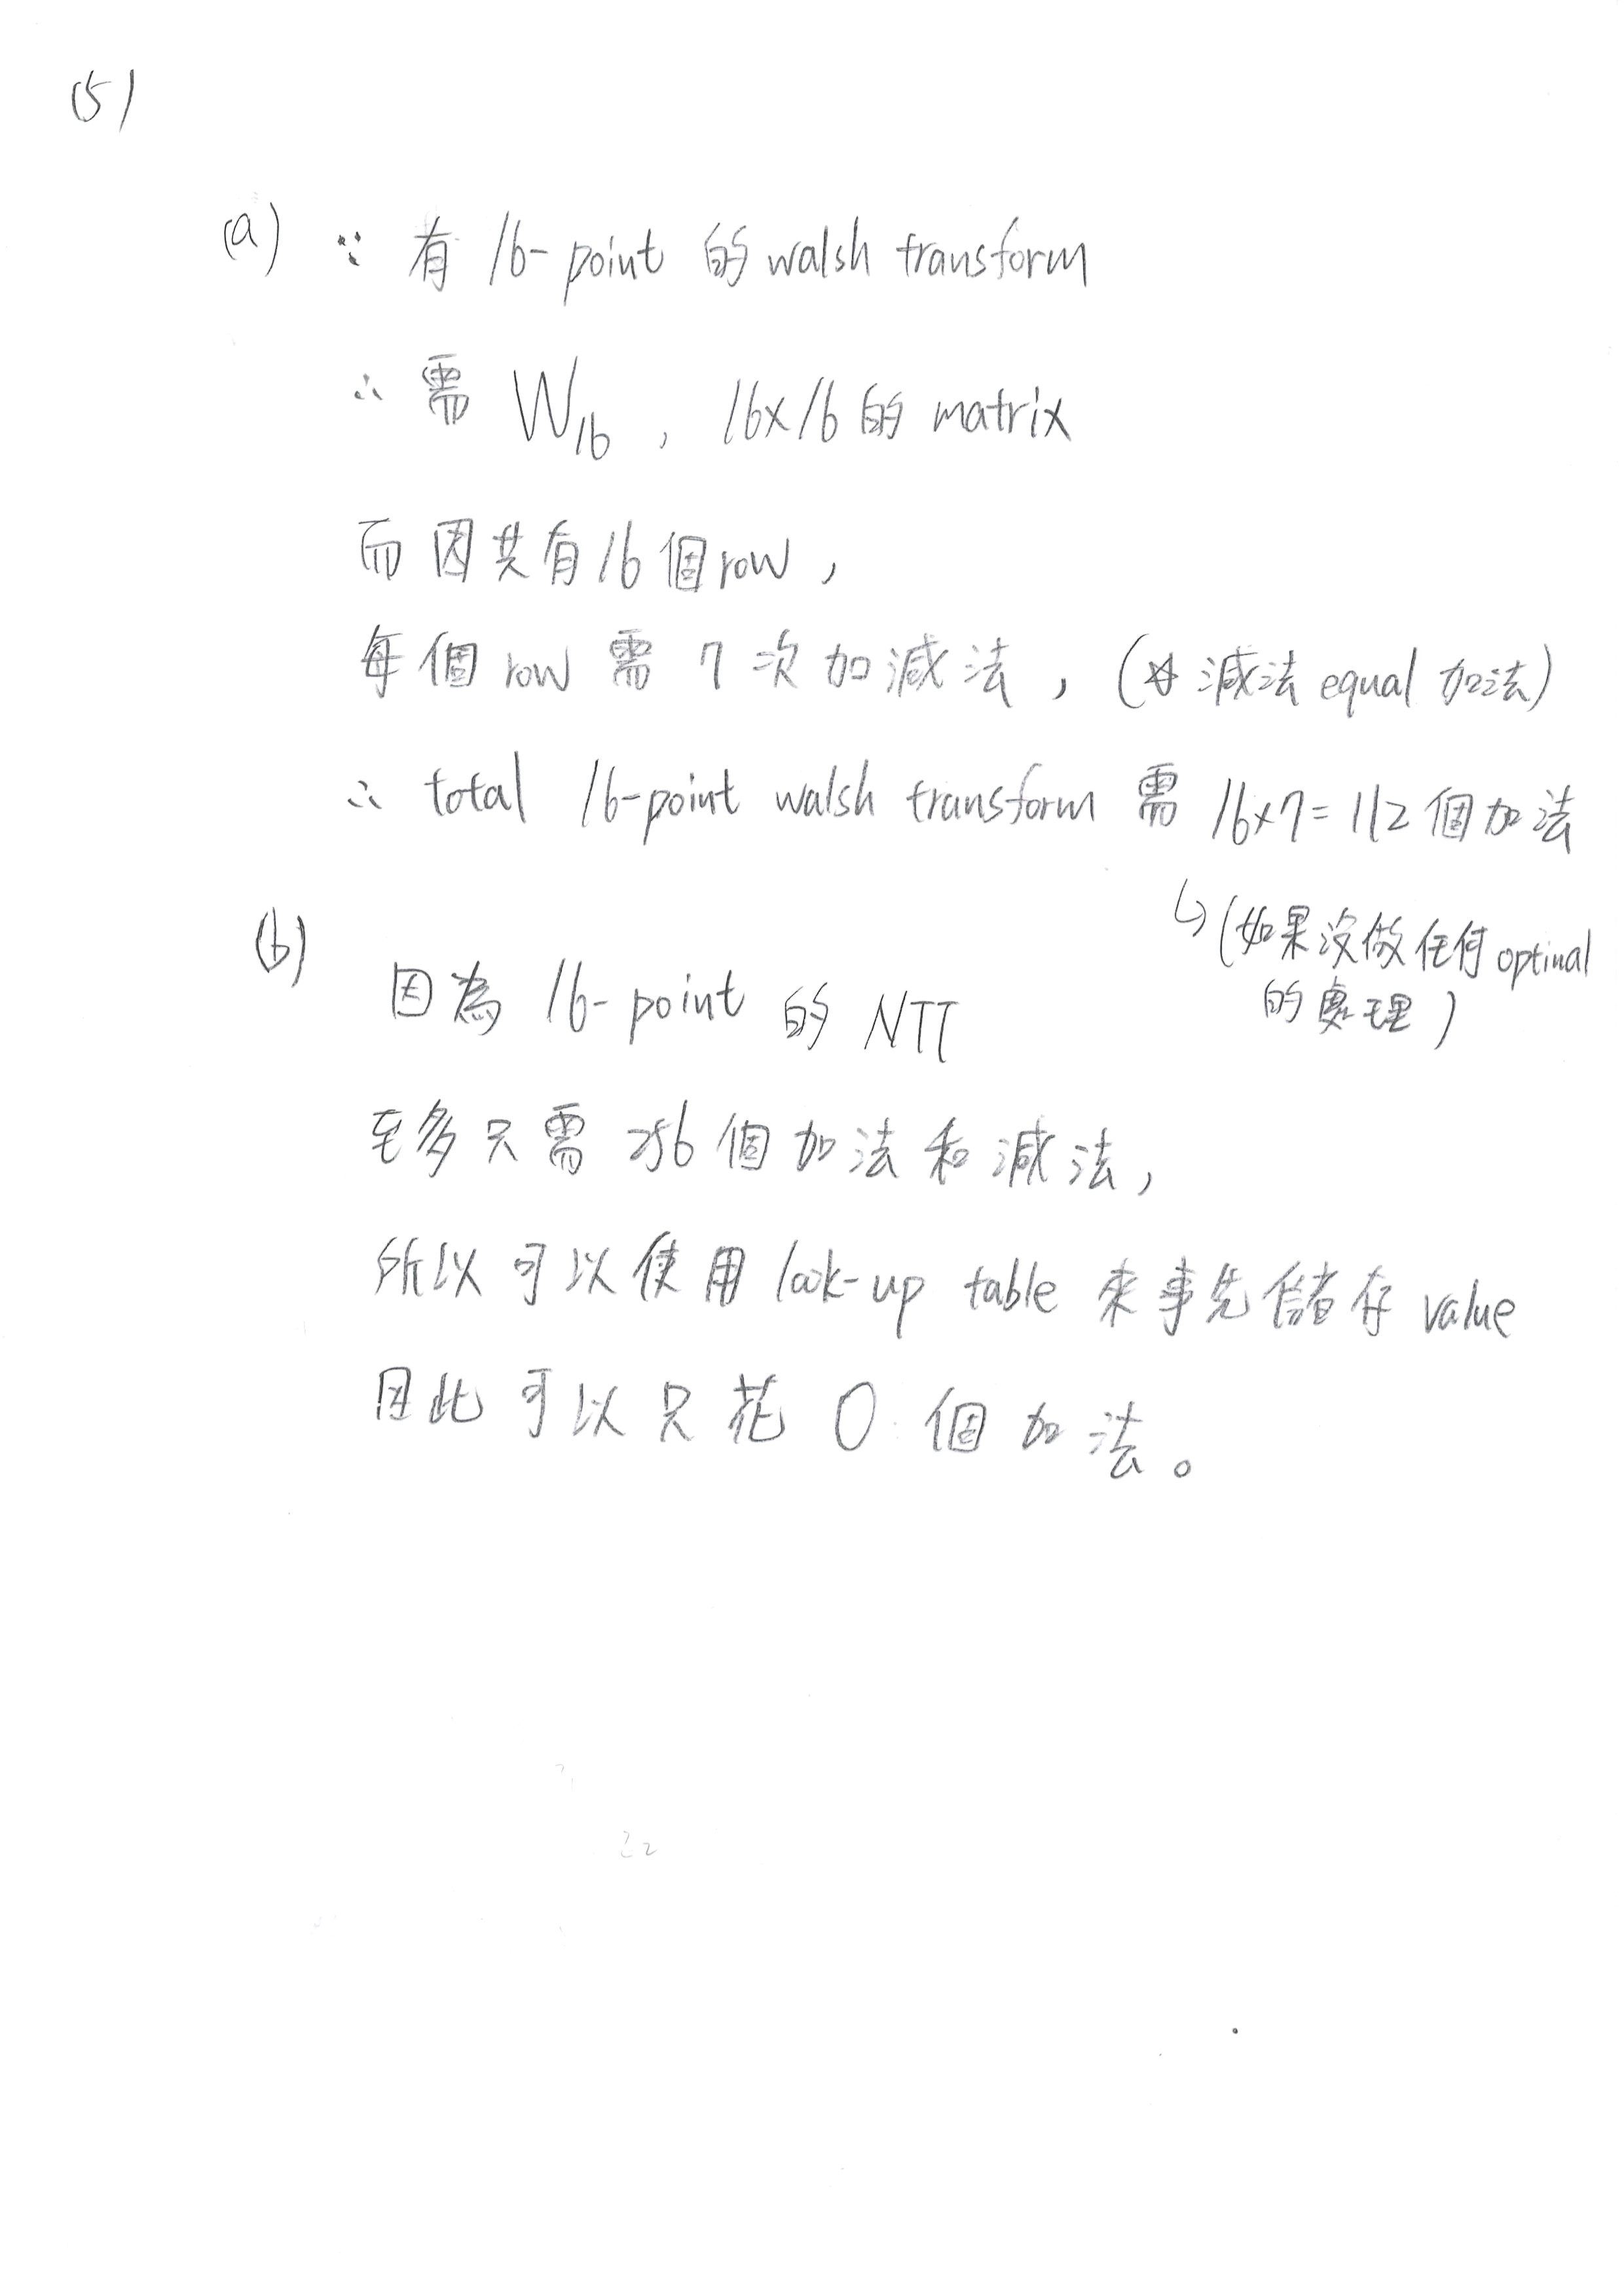 (5)
(a) ∵ 有 16-point 的 walsh transform
∴ 需 W16 , 16x16 的 matrix
而因共有16個row,
每個 row 需 7 次加減法, (☆ 減法 equal 加法)
∴ total 16-point walsh transform 需 16x7=112個加法
↳(如果沒做任何 optimal
的處理)
(b) 因為 16-point 的 NTT
至多只需 256 個加法和減法,
所以可以使用 look-up table 來事先儲存 value
因此可以只花 0 個加法。